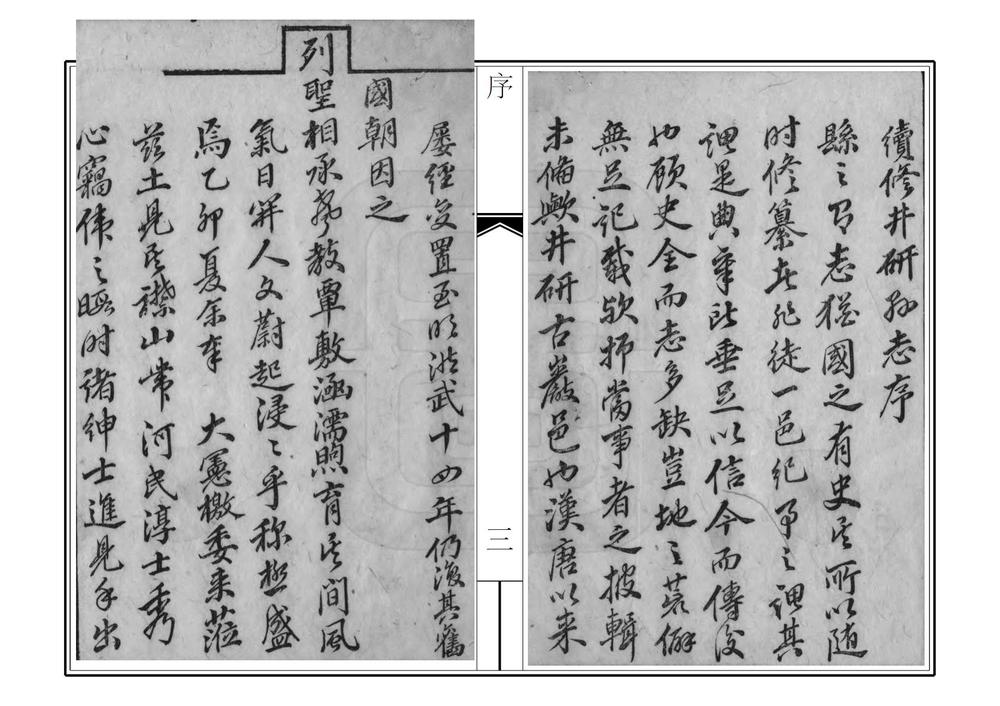 續修井研縣志序
縣之有志猶國之有史其所以隨
时修纂者非徒一邑紀事之課其
課是典章所垂足以信今而傳後
也顧史全而志多缺豈地之荒僻
無足記載歟抑當事者之披輯
未備歟井研古巖邑也漢唐以来
序
三
屡經更置至明洪武十四年仍復其舊
國朝因之
列聖相承聲教覃敷涵濡煦育其間風
氣日開人文蔚起浸〻乎称極盛
焉乙卯夏余奉 大憲檄委来蒞
兹土見其襟山带河民淳士秀
心竊偉之暇时諸紳士進見手出